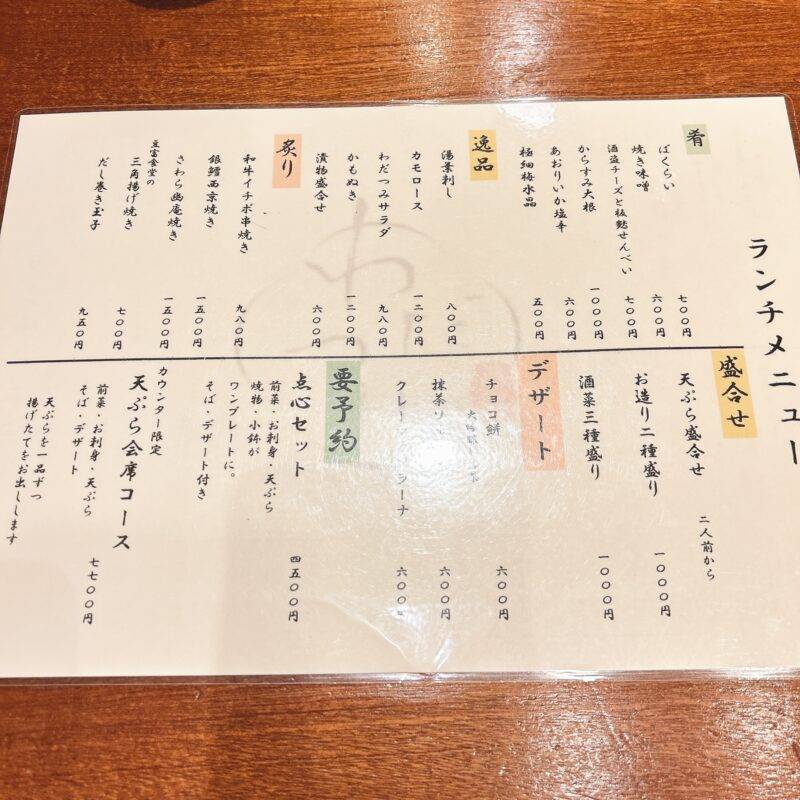 ランチメニュー
肴
ばくらい 七〇〇円
焼き味噌 六〇〇円
酒盗チーズと板麩せんべい 七〇〇円
からすみ大根 一〇〇〇円
あおりいか塩辛 六〇〇円
極細梅水晶 五〇〇円
逸品
湯葉刺し 八〇〇円
カモロース 一二〇〇円
わだつみサラダ 九八〇円
かもぬき 一二〇〇円
漬物盛合せ 六〇〇円
炙り
和牛イチボ串焼き 九八〇円
銀鱈西京焼き 一五〇〇円
さわら幽庵焼き 一五〇〇円
豆富食堂の
三角揚げ焼き 七〇〇円
だし巻き玉子 九五〇円
盛合せ
天ぷら盛合せ 二人前から
お造り二種盛り 一〇〇〇円
酒菜三種盛り 一〇〇〇円
デザート
チョコ餅 六〇〇円
抹茶 六〇〇円
六〇〇円
要予約
点心セット 四五〇〇円
前菜・お刺身・天ぷら
焼物・小鉢が
ワンプレートに。
そば・デザート付き
カウンター限定
天ぷら会席コース 七七〇〇円
前菜・お刺身・天ぷら
そば・デザート
天ぷらを一品ずつ
揚げたてをお出しします